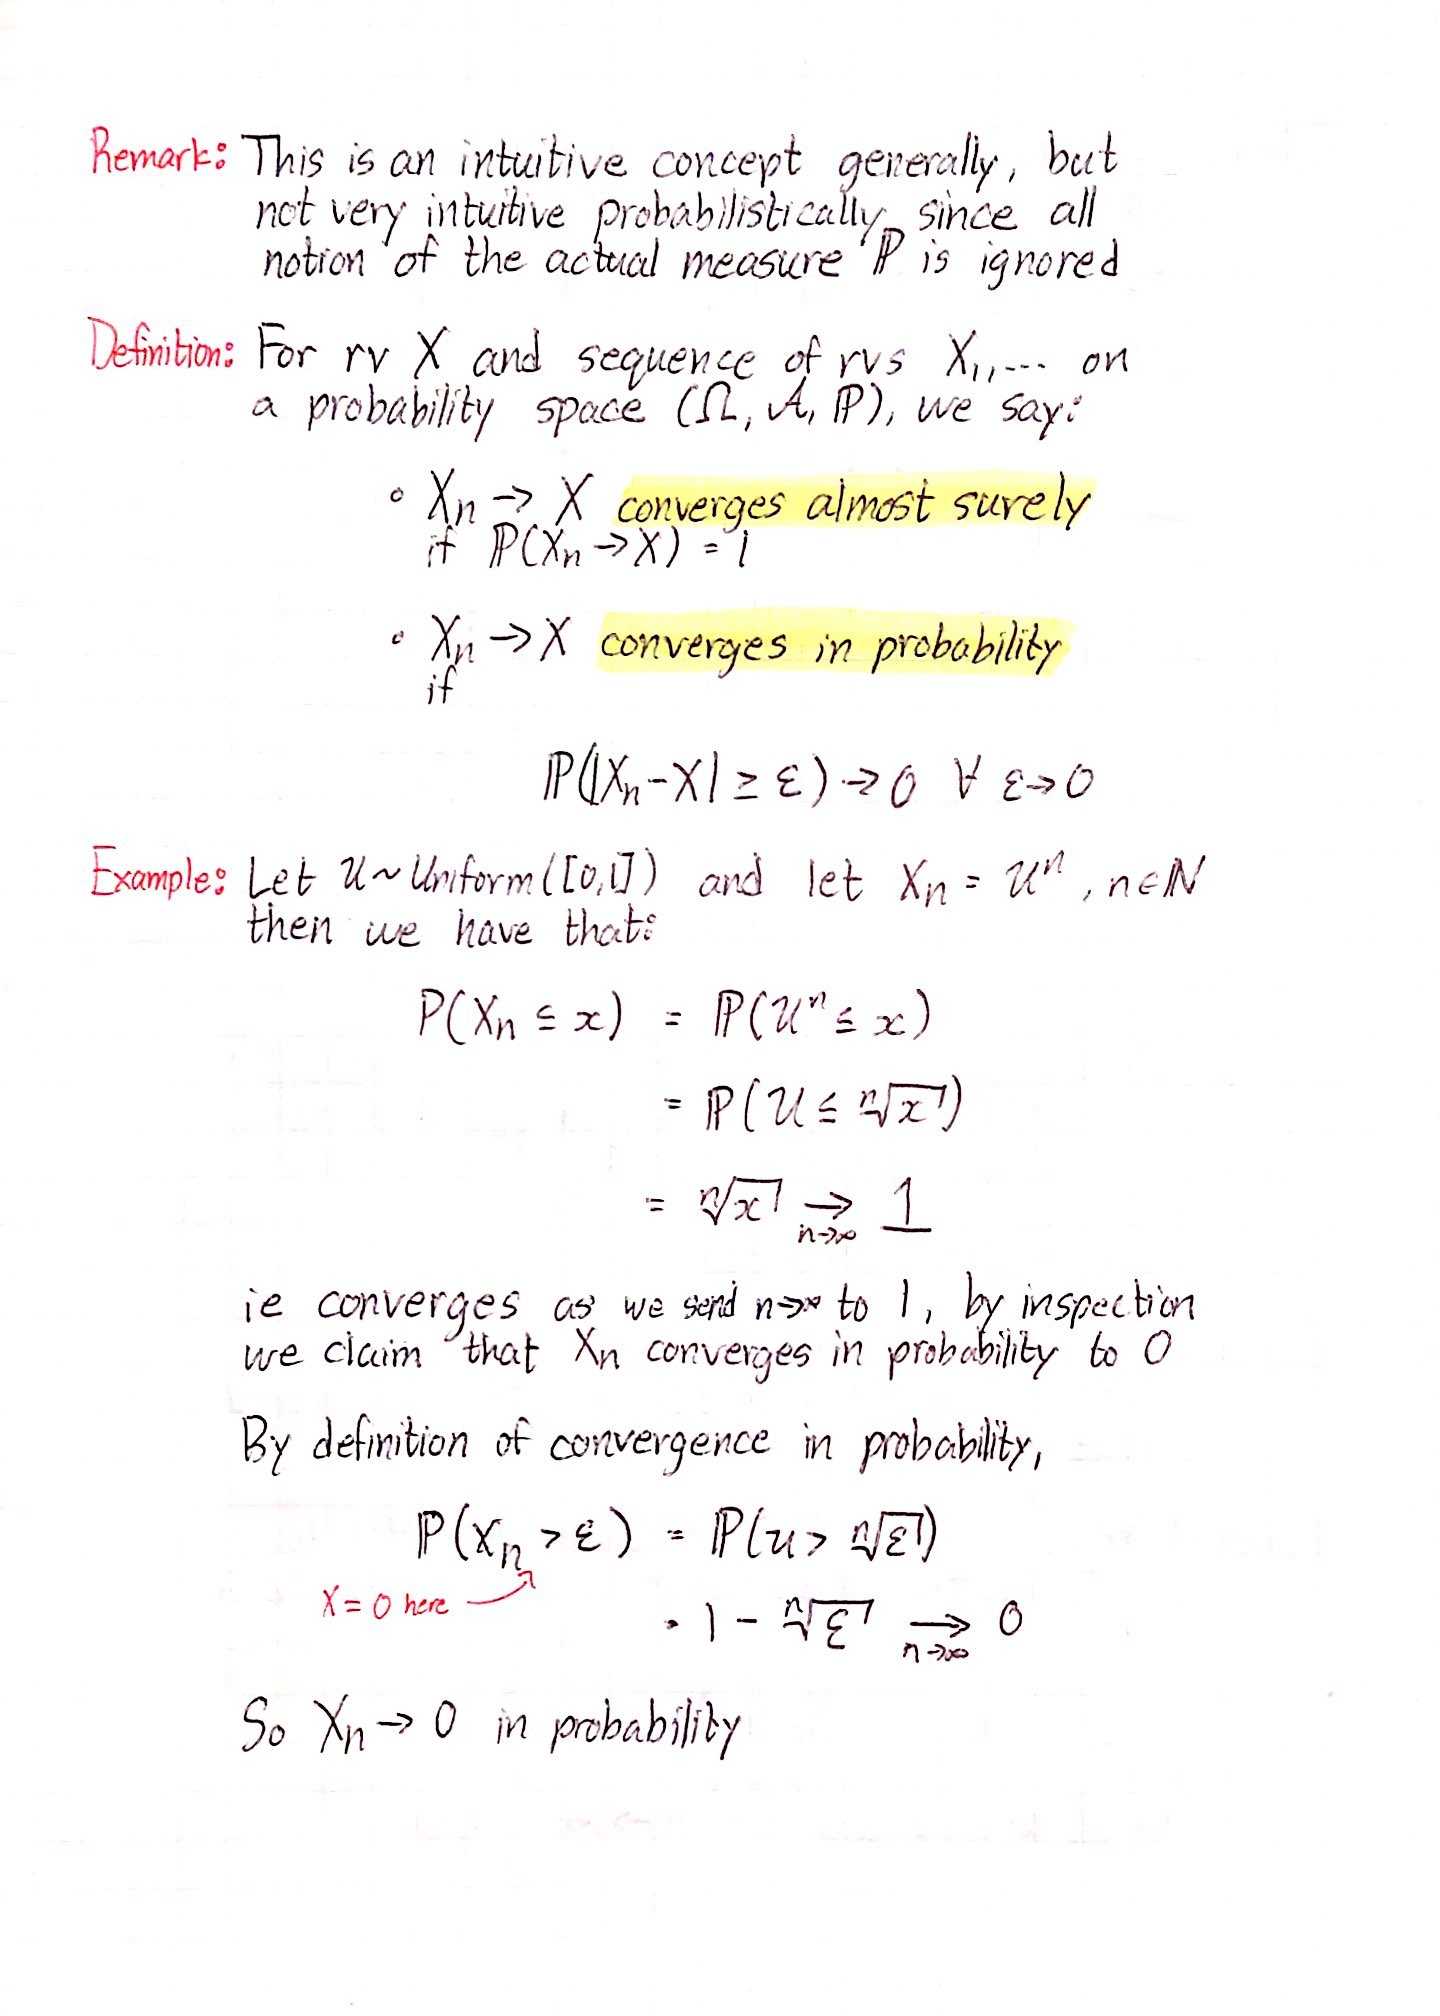 Remark: This is an intuitive concept generally, but
not very intuitive probabilistically, since all
notion of the actual measure ℙ is ignored
Definition: For rv X and sequence of rvs X₁,... on
a probability space (Ω, A, ℙ), we say:
∘ Xₙ → X converges almost surely
if ℙ(Xₙ → X) = 1
∘ Xₙ → X converges in probability
if
ℙ(|Xₙ - X| ≥ ε) → 0 ∀ ε → 0
Example: Let U ~ Uniform([0,1]) and let Xₙ = Uⁿ, n ∈ ℕ
then we have that:
P(Xₙ ≤ x) = ℙ(Uⁿ ≤ x)
= ℙ(U ≤ ⁿ√x)
= ⁿ√x → 1
n→∞
ie converges as we send n→∞ to 1, by inspection
we claim that Xₙ converges in probability to 0
By definition of convergence in probability,
ℙ(Xₙ > ε) = ℙ(U > ⁿ√ε)
X = 0 here
= 1 - ⁿ√ε → 0
n→∞
So Xₙ → 0 in probability